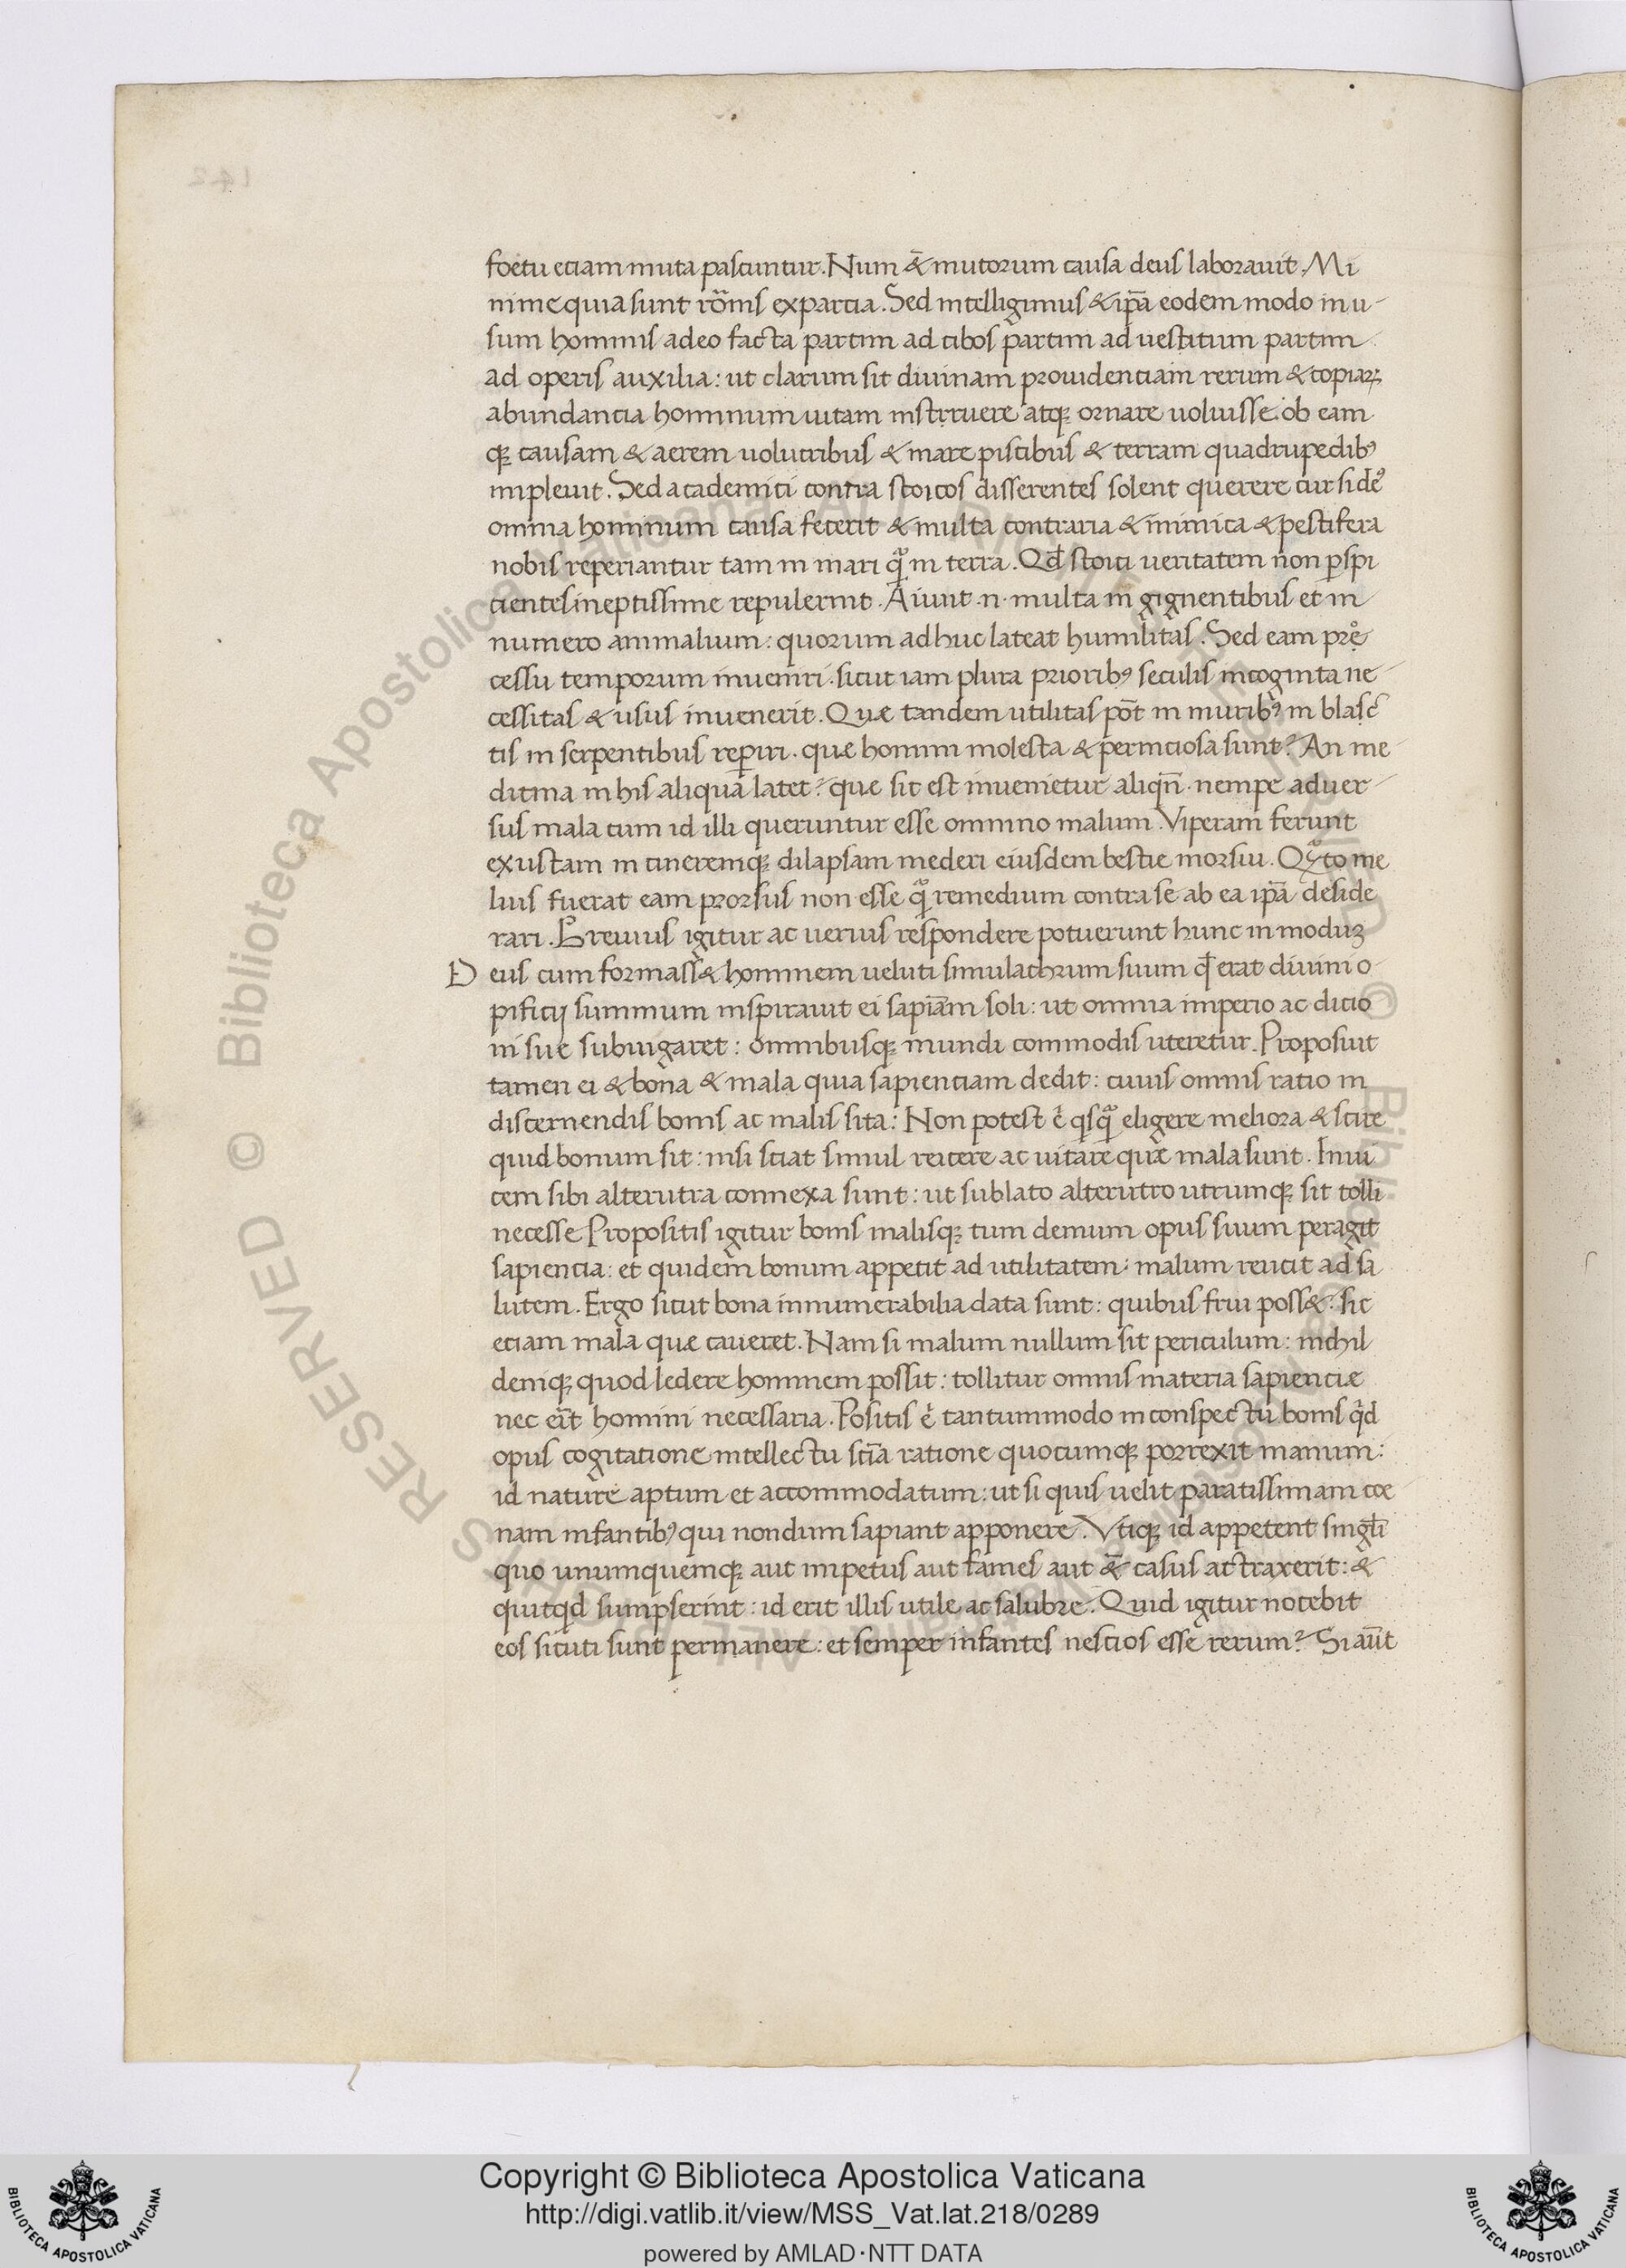 foetu eciam muta pascuntur. Num &̄ mutorum causa deus laborauit. Mi
nime quia sunt rōnis expartia. Sed intelligimus & ip̄a eodem modo in u-
sum hominis adeo facta partim ad cibos partim ad uestitum partim
ad operis auxilia: ut clarum sit diuinam prouidenciam rerum & copiaꝝ
abundancia hominum uitam instruere atqꝫ ornare uoluisse. ob eam
qꝫ causam & aerem uolucribus & mare piscibus & terram quadrupedibꝰ
impleuit. Sed academici contra stoicos disserentes solent querere cur si deꝰ
omnia hominum causa fecerit & multa contraria & inimica & pestifera
nobis reperiantur tam in mari qͣ in terra. Qd̄ stoici ueritatem non ꝑspi
cientes ineptissime repulerint. Aiunt .n. multa in gignentibus et in
numero animalium: quorum adhuc lateat humilitas. Sed eam pro
cessu temporum inueniri. sicut iam plura prioribꝰ seculis incognita ne-
cessitas & usus inuenerit. Quæ tandem utilitas pōt in muribꝰ in blac
tis in serpentibus reꝑiri. que homini molesta & perniciosa sunt? An me-
dicina in his aliqua latet? que sit est inuenietur aliqn̄. nempe aduer-
sus mala cum id illi queruntur esse omnino malum. Viperam ferunt
exustam in cineremqꝫ dilapsam mederi eiusdem bestie morsui. Qͣto me
lius fuerat eam prorsus non esse qͣ remedium contra se ab ea ip̄a deside
rari. Breuius igitur ac uerius respondere potuerunt hunc in moduꝫ
Deus cum formass& hominem ueluti simulachrum suum qd̄ erat diuini o-
pificij summum inspirauit ei sapiām soli: ut omnia imperio ac dicio
ni sue subiugaret: omnibusqꝫ mundi commodis uteretur. Proposuit
tamen ei & bona & mala quia sapienciam dedit: cuius omnis ratio in
discernendis bonis ac malis sita: Non potest .e. qͥsqͣ eligere meliora & scire
quid bonum sit: nisi sciat simul reicere ac uitare quæ mala sunt. Inui
cem sibi alterutra connexa sunt: ut sublato alterutro utrumqꝫ sit tolli
necesse Propositis igitur bonis malisqꝫ tum demum opus suum peragit
sapiencia: et quidem bonum appetit ad utilitatem: malum reiicit ad sa
lutem. Ergo sicut bona innumerabilia data sunt: quibus frui poss&: sic
eciam mala quæ caueret. Nam si malum nullum sit periculum: nichil
deniqꝫ quod ledere hominem possit: tollitur omnis materia sapienciæ
nec eīt homini necessaria. Positis .e. tantummodo in conspectu bonis qͥd
opus cogitatione intellectu sciā ratione quocumqꝫ porrexit manum:
id nature aptum et accommodatum: ut si quis uelit paratissimam coe
nam infantibꝰ qui nondum sapiant apponere. Vtiqꝫ id appetent singl̄i
quo unumquemqꝫ aut impetus aut fames aut &̄ casus attraxerit: &
quitqͥd sumpserint: id erit illis utile ac salubre. Quid igitur nocebit
eos sicuti sunt permanere: et semper infantes nescios esse rerum? Si aūt
Copyright © Biblioteca Apostolica Vaticana
http://digi.vatlib.it/view/MSS_Vat.lat.218/0289
powered by AMLAD·NTT DATA